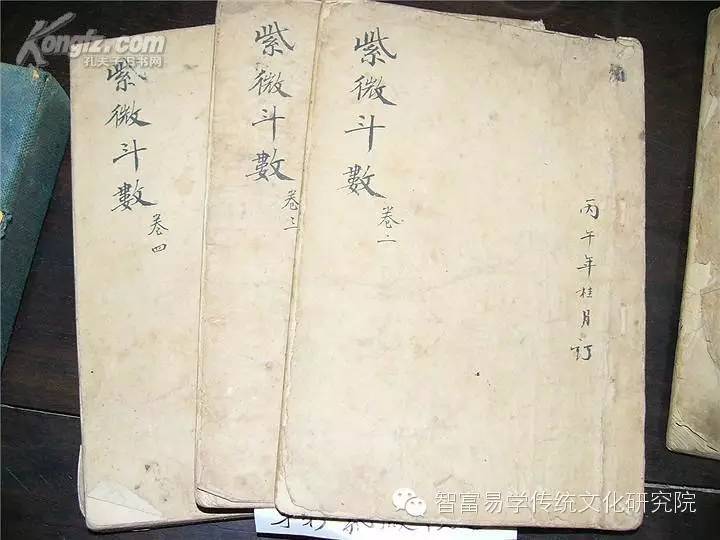 Kongfz.com
孔夫子旧书网
紫微斗數
卷二
丙午年桂月訂
紫微斗數
卷三
紫微斗數
卷四
智富易学传统文化研究院